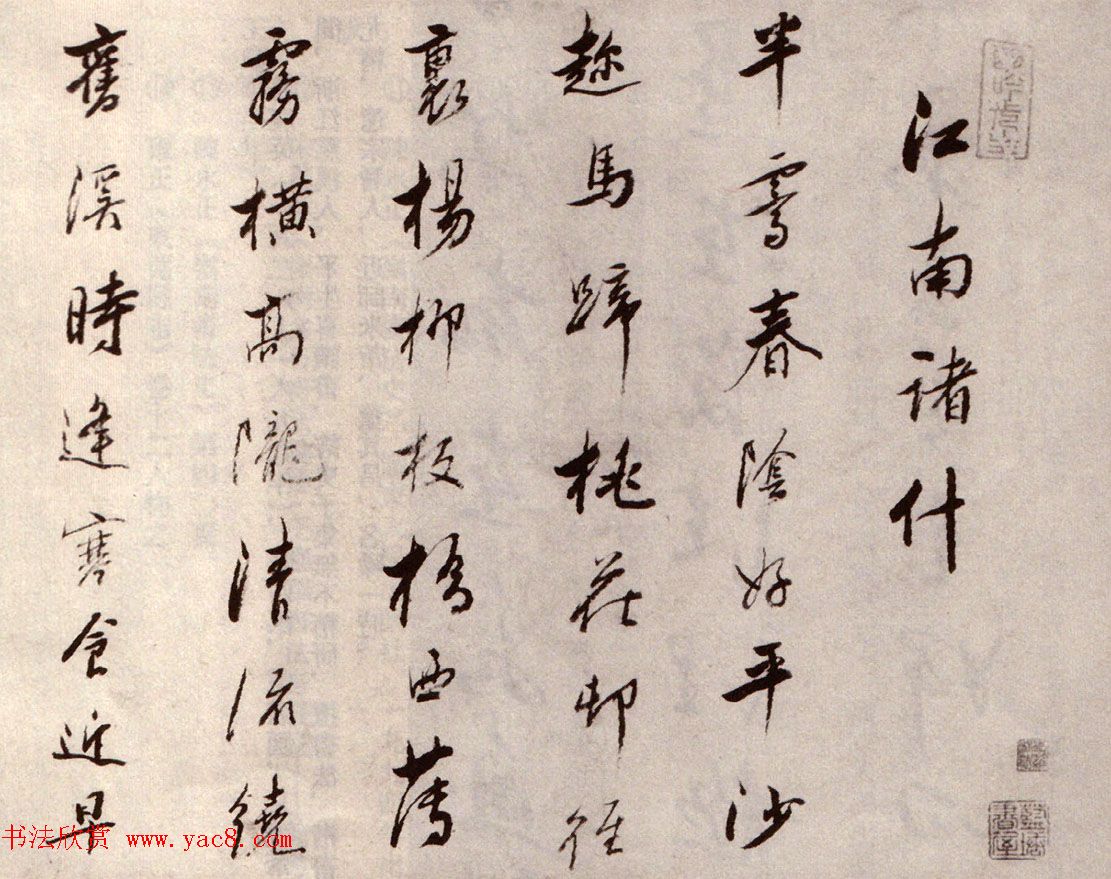 江南諸什
半霽春陰好平沙
趂馬蹄桃花邨徑
裏楊柳板橋西薄
霧橫高隴清流繞
舊溪時逢寒食近早
书法欣赏 www.yac8.com